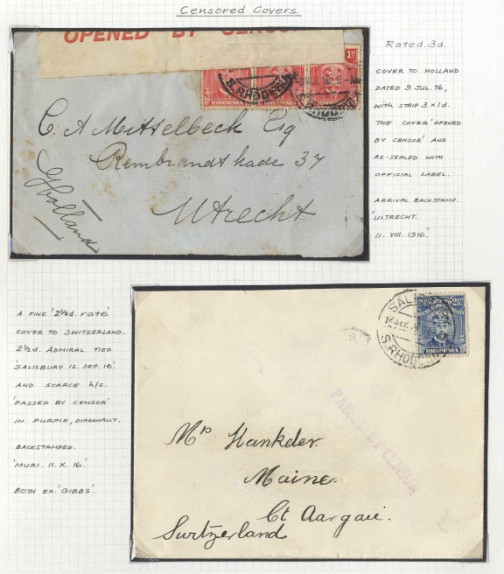 Censored Covers.
OPENED BY CENSOR
S. RHODESIA
RHODESIA
C. A Mittelbeck Esq
Rembrandtkade 37
Utrecht
Holland
Rated. 3d.
COVER TO HOLLAND
DATED 9 JUL. 16,
WITH STRIP 3 x 1d.
THE COVER 'OPENED
BY CENSOR' AND
RE-SEALED WITH
OFFICIAL LABEL.
ARRIVAL BACKSTAMP.
'ULTRECHT.
11. VIII. 1916.'
A FINE '2½d. rate'
COVER TO SWITZERLAND.
2½d. ADMIRAL TIED
'SALISBURY 12. SEP. 16'
AND SCARCE h/s.
'PASSED BY CENSOR'
IN PURPLE, DIAGONALLY.
BACKSTAMPED.
'MURI. 11. X. 16.'
BOTH EX 'GIBBS'.
RHODESIA
PASSED BY CENSOR
Mrs Hankder
Maine
Ct Aargaie.
Switzerland